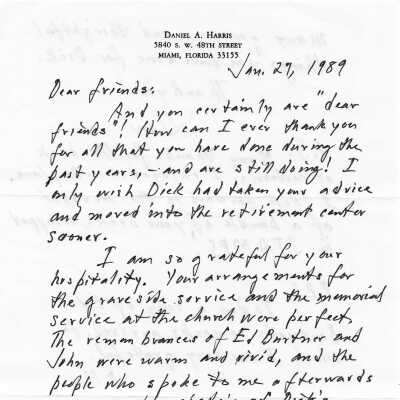 DANIEL A. HARRIS
5840 S. W. 48TH STREET
MIAMI, FLORIDA 33155
Jan. 27, 1989
Dear friends:
And you certainly are "dear
friends"! How can I ever thank you
for all that you have done during the
past years, - and are still doing! I
only wish Dick had taken your advice
and moved into the retirement center
sooner.
I am so grateful for your
hospitality. Your arrangements for
the graveside service and the memorial
service at the church were perfect.
The remembrances of Ed Burtner and
John were warm and vivid, and the
people who spoke to me afterwards